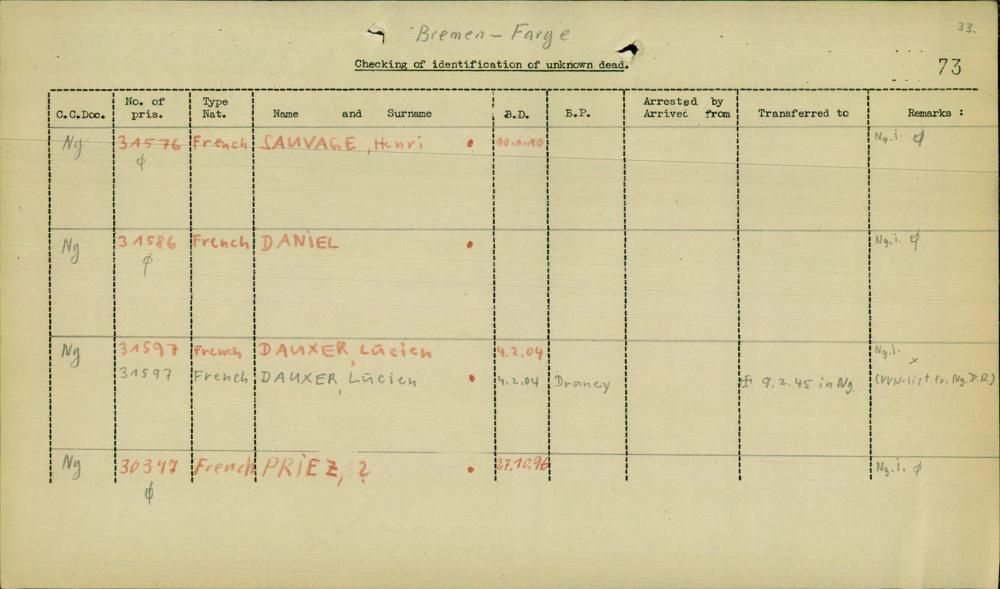 Bremen - Farge
33.
Checking of identification of unknown dead.
73
C.C.Doc. No. of pris. Type Nat. Name and Surname B.D. B.P. Arrested by Arrived from Transferred to Remarks :
Ng 31576 French SAUVAGE, Henri 10.1.10 Ng.i. ϕ
ϕ
Ng 31586 French DANIEL Ng.i. ϕ
ϕ
Ng 31597 French DAUXER, Lūcien 4.2.04 Ng.i.
31597 French DAUXER, Lūcien 4.2.04 Drancy 9.2.45 in Ng (VVN-list fr. Ng.D.R.)
Ng 30347 French PRIEZ, ? 27.10.96 Ng.i. ϕ
ϕ